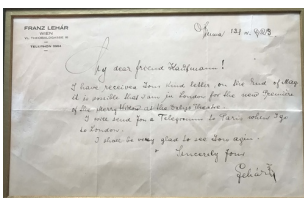 FRANZ LEHÁR
WIEN
My dear freend Kaufmann!
I have received Your kind letter, on the 2nd of May
it is possible that I am in London for the new Premiere
of the Merry Widow at the Dalys Theatre.
I will send You a Telegramm to Paris when I go
to London.
I shall be very glad to see You again.
Sincerely Yours